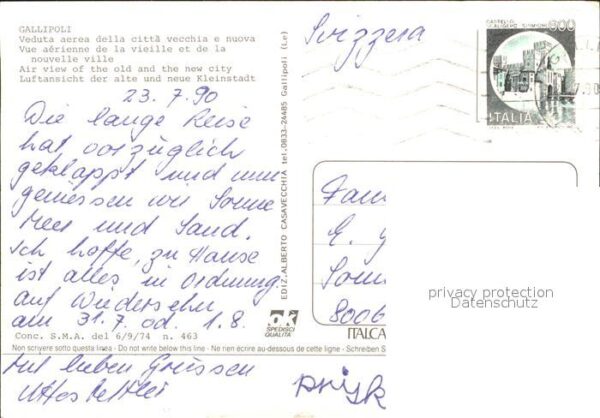 GALLIPOLI
Veduta aerea della città vecchia e nuova
Vue aérienne de la vieille et de la
nouvelle ville
Air view of the old and the new city
Luftansicht der alte und neue Kleinstadt
23.7.90
Die lange Reise
hat vorzüglich
geklappt und nun
geniessen wir Sonne
Meer und Sand.
Ich hoffe, zu Hause
ist alles in Ordnung.
Auf Wiedersehn
am 31.7. od. 1.8.
Conc. S.M.A. del 6/9/74 n. 463
Non scrivere sotto questa linea - Do not write below this line - Ne rien écrire au-dessous de cette ligne - Schreiben S
Mit lieben Grüssen
EDIZ. ALBERTO CASAVECCHIA tel.0833-24485 Gallipoli (Le)
OK
SPEDISCI
QUALITÀ
Svizzera
800
ITALIA
Fam
E. G
8006
ITALCA
privacy protection
Datenschutz